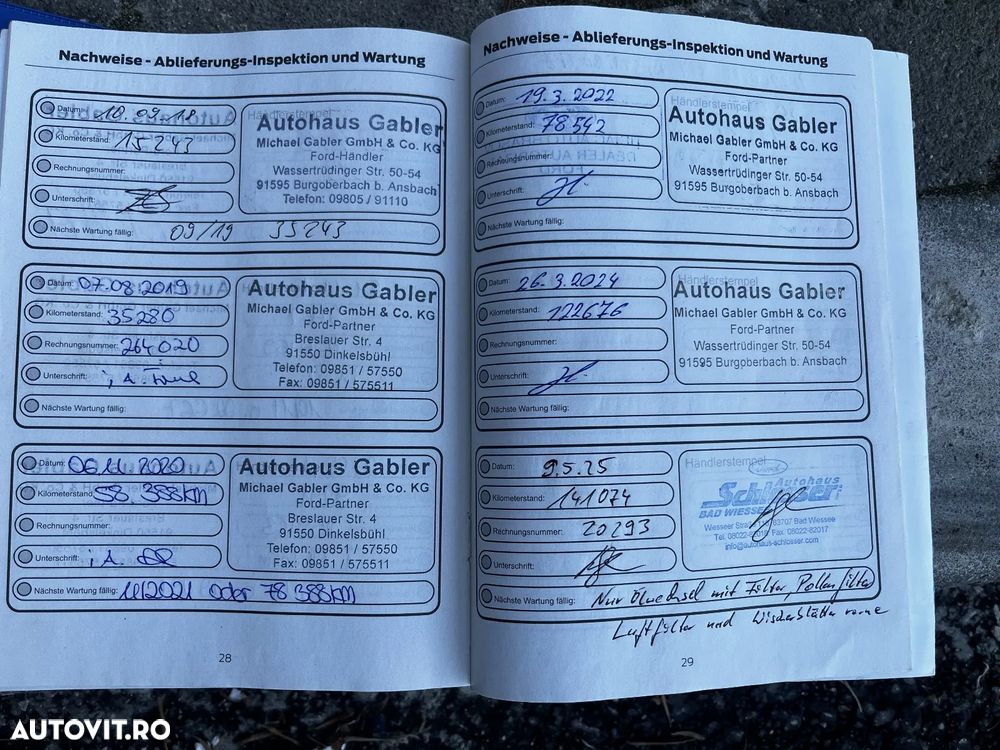 Nachweise - Ablieferungs-Inspektion und Wartung
Datum: 10.09.18
Kilometerstand: 15243
Rechnungsnummer:
Unterschrift:
Nächste Wartung fällig: 09/19 35243
Autohaus Gabler
Michael Gabler GmbH & Co. KG
Ford-Händler
Wassertrüdinger Str. 50-54
91595 Burgoberbach b. Ansbach
Telefon: 09805 / 91110
Datum: 07.08.2019
Kilometerstand: 35280
Rechnungsnummer: 264020
Unterschrift: i.A.
Nächste Wartung fällig:
Autohaus Gabler
Michael Gabler GmbH & Co. KG
Ford-Partner
Breslauer Str. 4
91550 Dinkelsbühl
Telefon: 09851 / 57550
Fax: 09851 / 575511
Datum: 06.11.2020
Kilometerstand: 58.388km
Rechnungsnummer:
Unterschrift: i.A.
Nächste Wartung fällig: 11/2021 oder 78 388km
Autohaus Gabler
Michael Gabler GmbH & Co. KG
Ford-Partner
Breslauer Str. 4
91550 Dinkelsbühl
Telefon: 09851 / 57550
Fax: 09851 / 575511
28
Nachweise - Ablieferungs-Inspektion und Wartung
Datum: 19.3.2022
Kilometerstand: 78542
Rechnungsnummer:
Unterschrift:
Nächste Wartung fällig:
Händlerstempel
Autohaus Gabler
Michael Gabler GmbH & Co. KG
Ford-Partner
Wassertrüdinger Str. 50-54
91595 Burgoberbach b. Ansbach
Datum: 26.3.2024
Kilometerstand: 122676
Rechnungsnummer:
Unterschrift:
Nächste Wartung fällig:
Händlerstempel
Autohaus Gabler
Michael Gabler GmbH & Co. KG
Ford-Partner
Wassertrüdinger Str. 50-54
91595 Burgoberbach b. Ansbach
Datum: 9.5.25
Kilometerstand: 141074
Rechnungsnummer: 20293
Unterschrift:
Nächste Wartung fällig: Nur Ölwechsel mit Filter, Pollenfilter
Luftfilter und Wischerblätter vorne
Händlerstempel
Autohaus
Schlosser
BAD WIESSEE
83707 Bad Wiessee
Fax: 08022-82017
info@autohaus-schlosser.com
29
AUTOVIT.RO